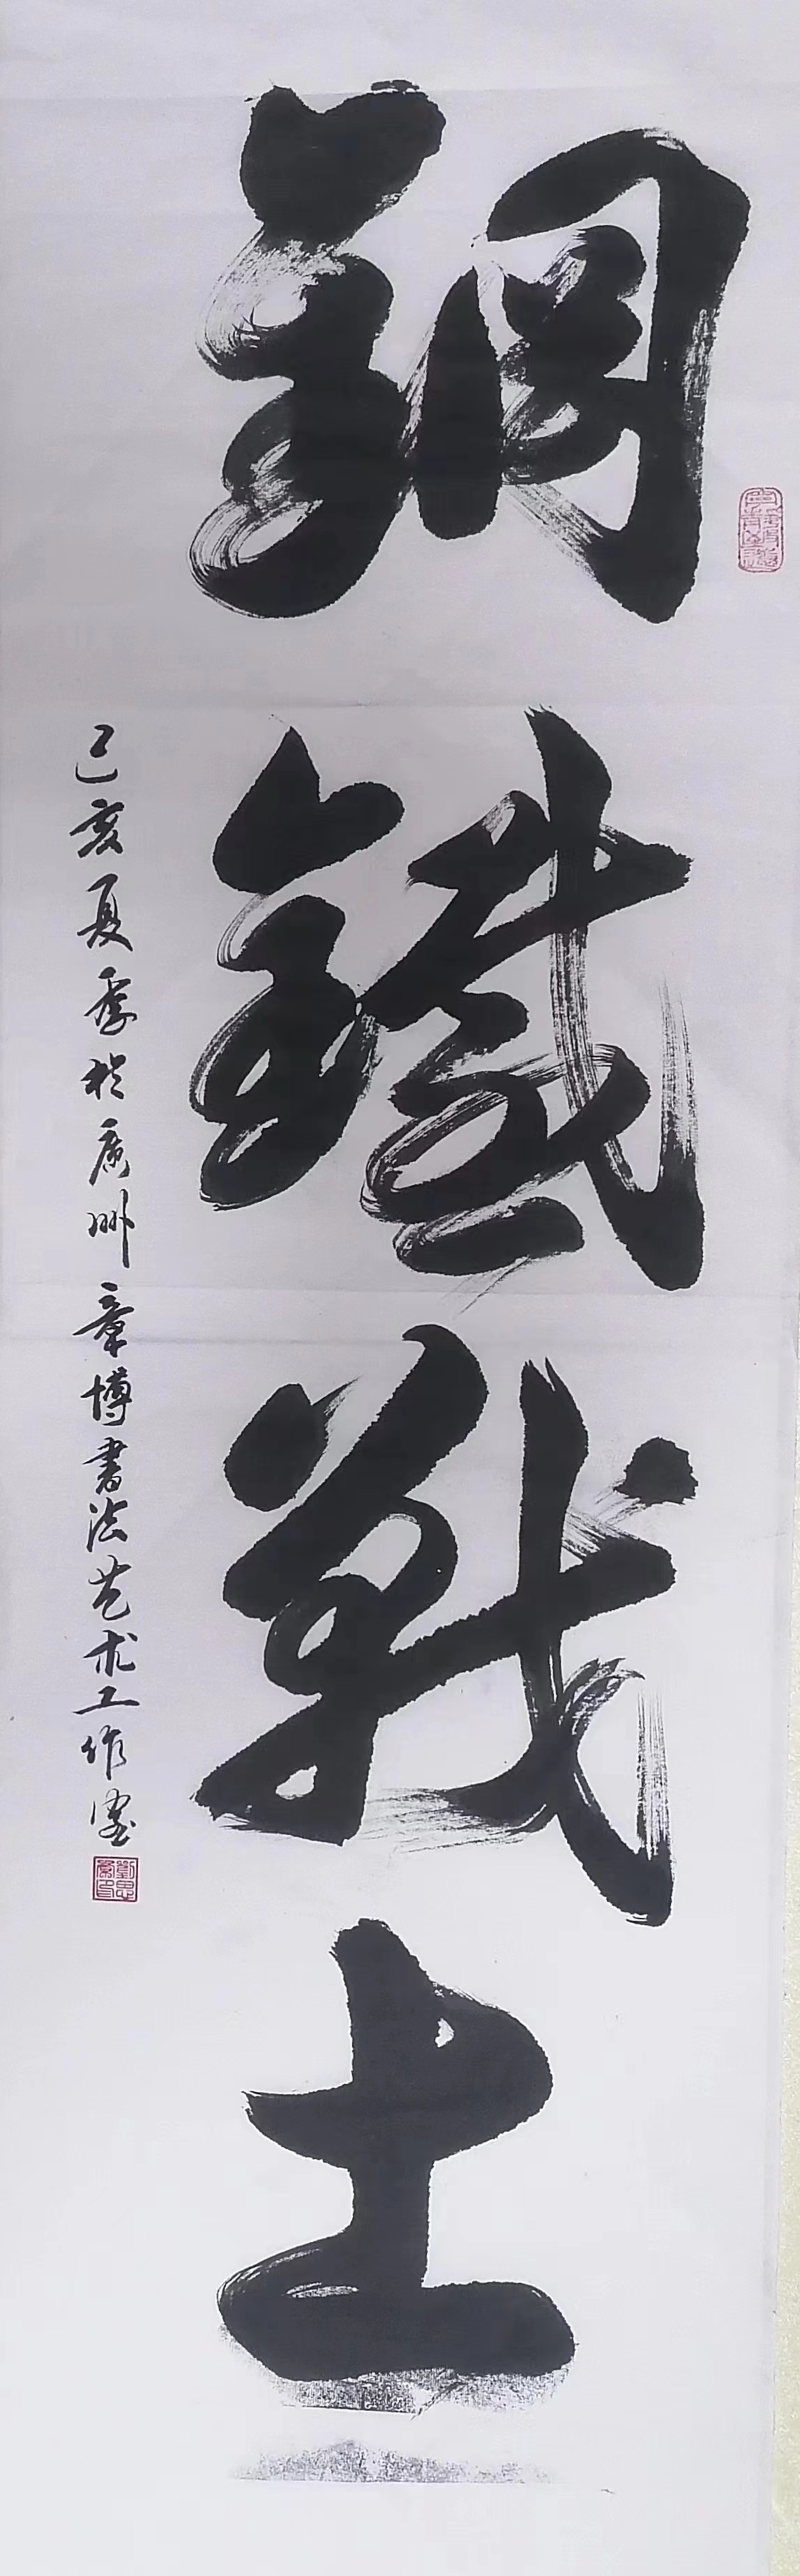 鋼鐵戰士
己亥夏季於廣州章博書法艺术工作室